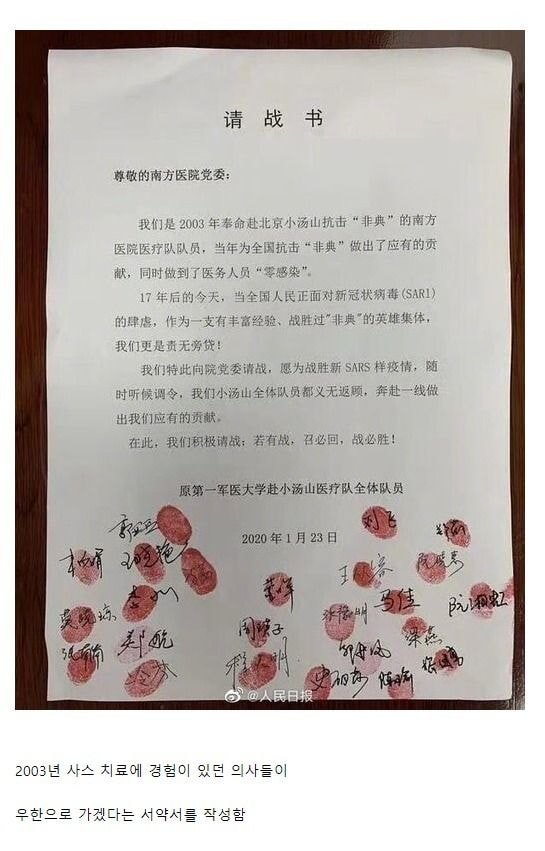 请战书
尊敬的南方医院党委：
我们是 2003 年奉命赴北京小汤山抗击“非典”的南方
医院医疗队队员，当年为全国抗击“非典”做出了应有的贡
献，同时做到了医务人员“零感染”。
17 年后的今天，当全国人民正面对新冠状病毒(SARI)
的肆虐，作为一支有丰富经验、战胜过"非典"的英雄集体，
我们更是责无旁贷！
我们特此向院党委请战，愿为战胜新 SARS 样疫情，随
时听候调令，我们小汤山全体队员都义无返顾，奔赴一线做
出我们应有的贡献。
在此，我们积极请战；若有战，召必回，战必胜！
原第一军医大学赴小汤山医疗队全体队员
2020 年 1 月 23 日
刘飞
马佳
@人民日报
2003년 사스 치료에 경험이 있던 의사들이
우한으로 가겠다는 서약서를 작성함